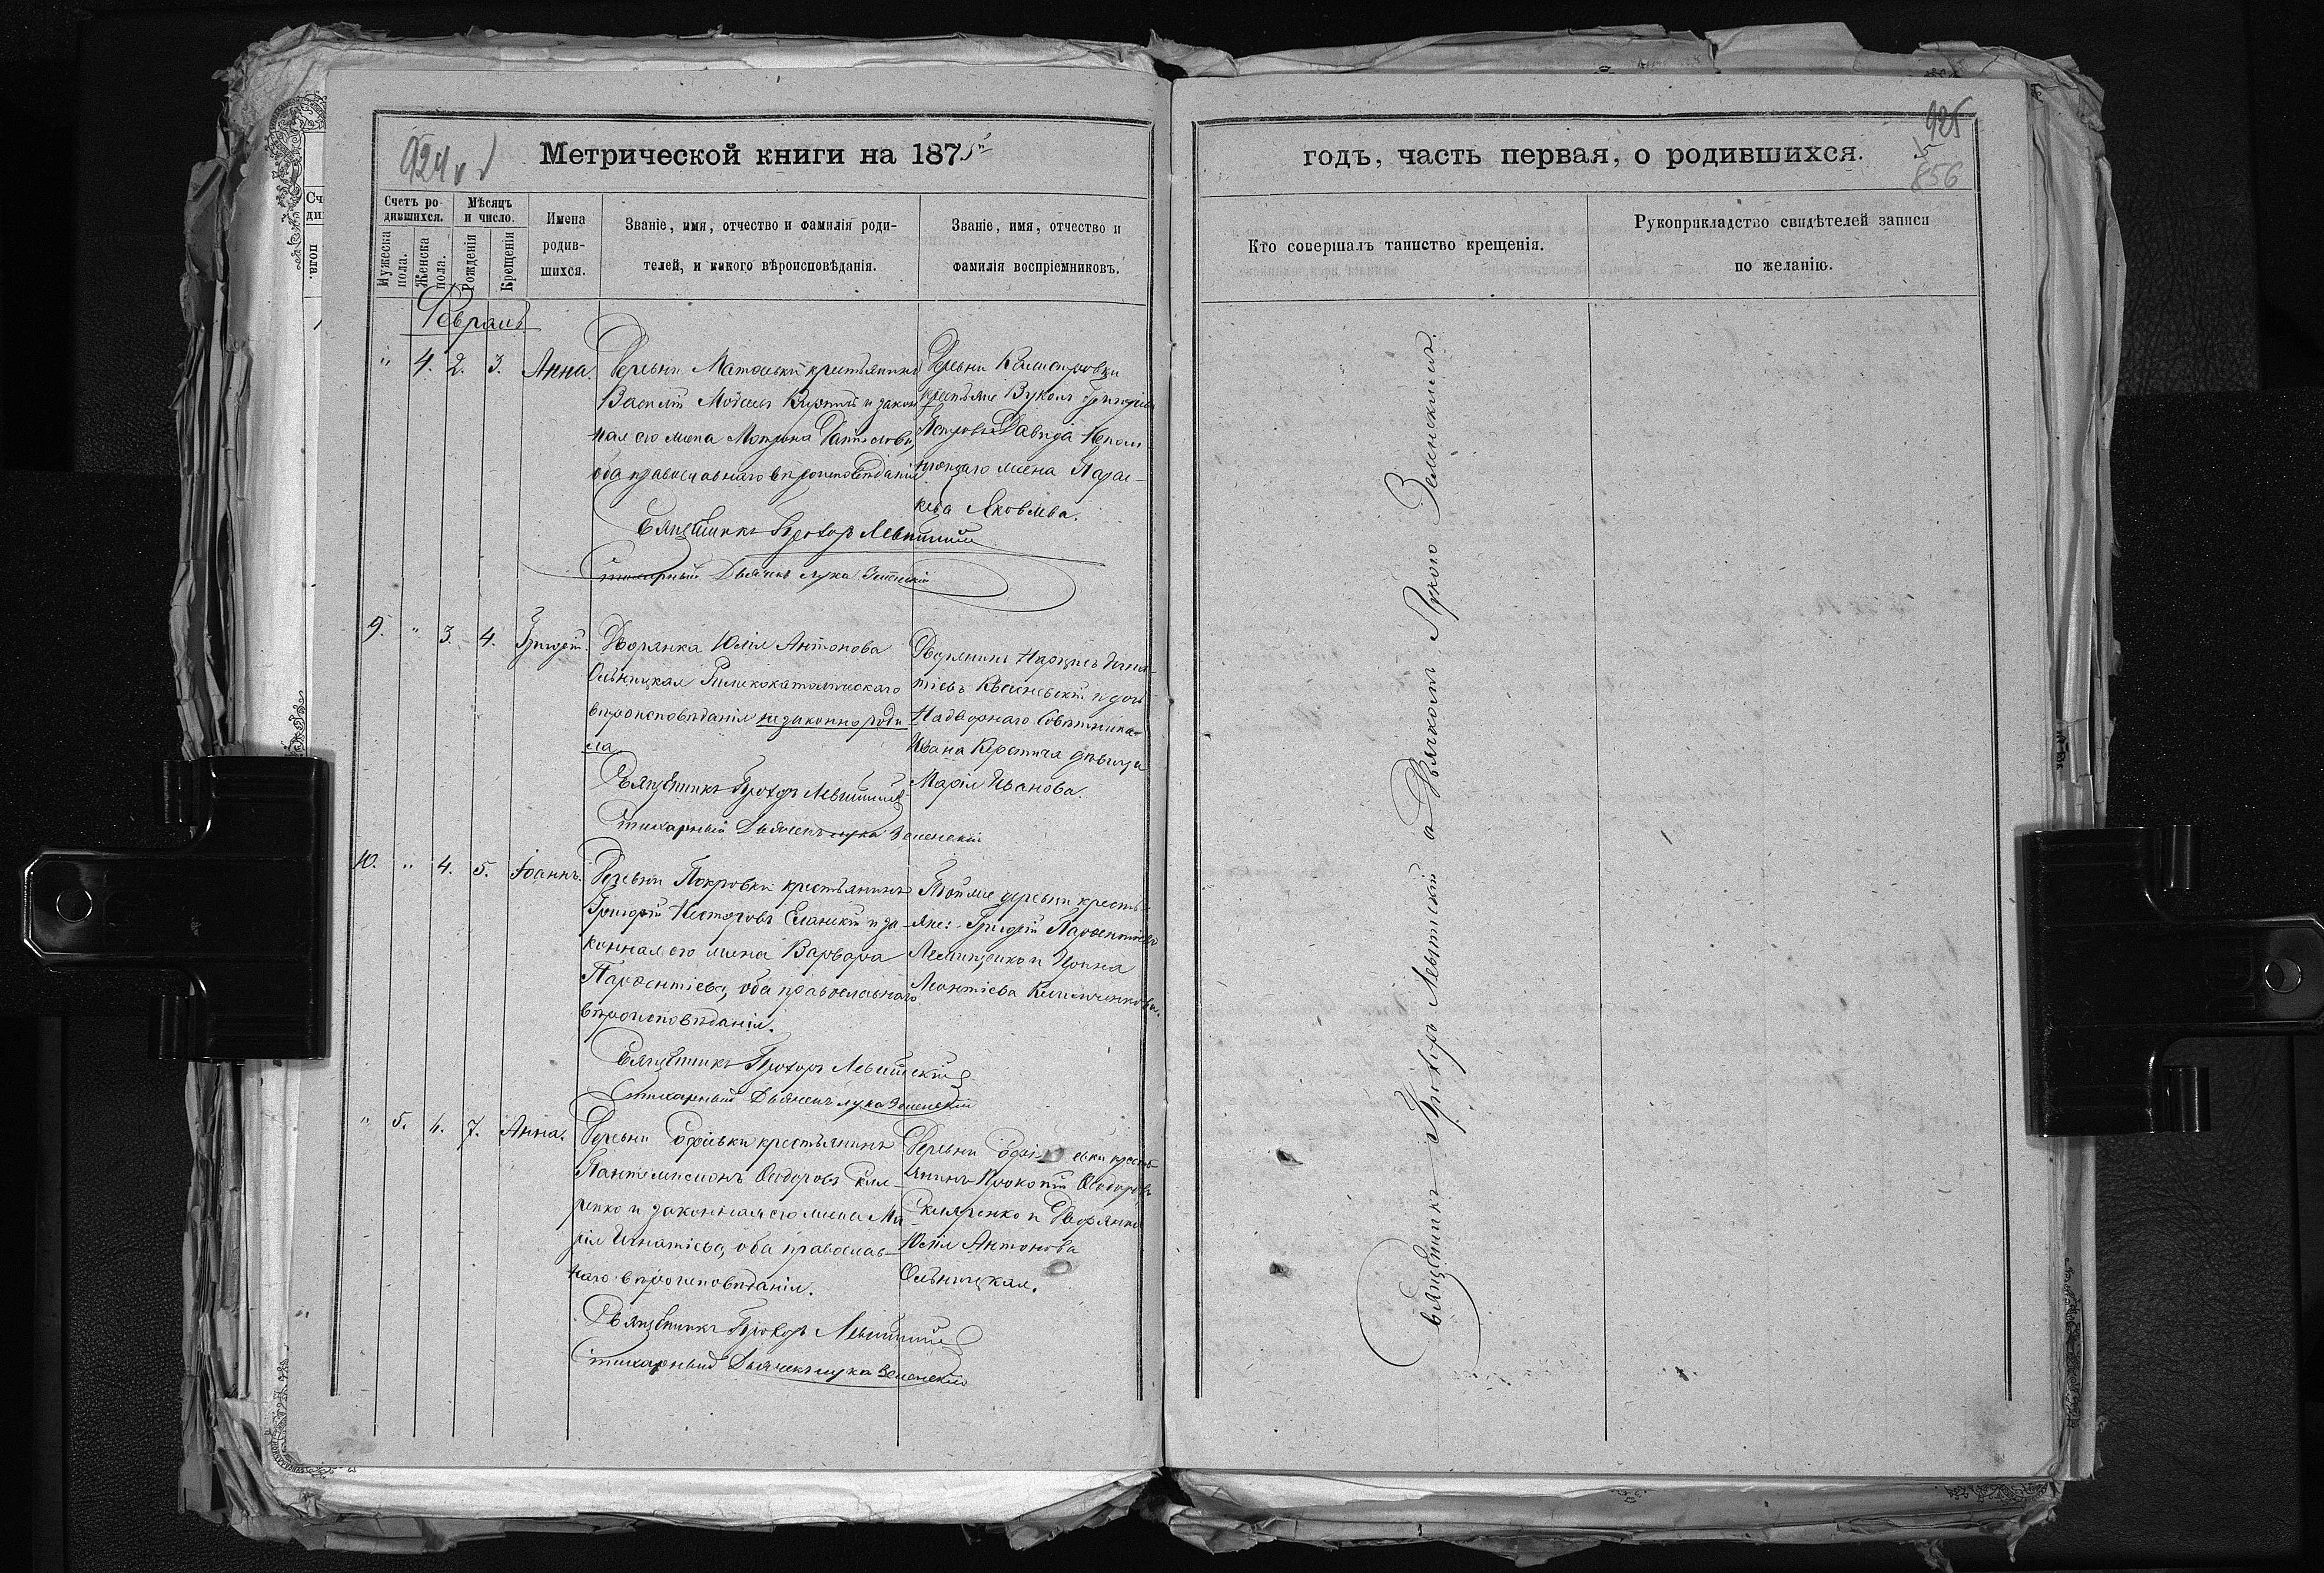 924 об
Метрической книги на 1875й
Счетъ ро-
дившихся.
Мѣсяцъ
и число.
Мужеска
пола.
Женска
пола.
Рожденія
Крещенія
Имена
родив-
шихся.
Званіе, имя, отчество и фамилія роди-
телей, и какого вѣроисповѣданія.
Званіе, имя, отчество и
фамилія воспріемниковъ.
Февраль
" 4. 2. 3. Анна.
Деревни крестьянинъ
Василій и закон
ная его жена Матрона
оба православнаго вѣроисповѣданія
Священникъ Прохоръ Левитскій
Стихарный Дьячекъ Лука Зеленскій
Деревни
крестьяне Вуколъ Григорьевъ
Давида
жена Парас-
кева Яковлева.
9. " 3. 4. Григорій.
Дворянка Юлія Антонова
Ольницкая Римскокатолическаго
вѣроисповѣданія незаконно роди
ла
Священникъ Прохоръ Левитскій
Стихарный Дьячекъ Лука Зеленскій
Дворянинъ Нарцисъ
и дочь
Надворнаго Совѣтника
Ивана дѣвица
Марія Иванова.
10. " 4. 5. Іоаннъ.
Деревни Покровки крестьянинъ
Григорій Несторовъ и за
конная его жена Варвара
Парфентіева, оба православнаго
вѣроисповѣданія.
Священникъ Прохоръ Левитскій
Стихарный Дьячекъ Лука Зеленскій
Той же деревни кресть-
яне: Григорій Парфентіевъ
и Ирина
Леонтіева
" 5. 6. 7. Анна.
Деревни Софіевки крестьянинъ
Пантелеимонъ Ѳеодоровъ Скля-
ренко и законная его жена Ма-
рія Игнатіева, оба православ-
наго вѣроисповѣданія.
Священникъ Прохоръ Левитскій
Стихарный Дьячекъ Лука Зеленскій
Деревни Софіевки кресть-
янинъ Прокопій Ѳеодоровъ
Скляренко и Дворянка
Юлія Антонова
Ольницкая.
годъ, часть первая, о родившихся.
925
5
856
Кто совершалъ таинство крещенія.
Рукоприкладство свидѣтелей записи
по желанію.
Священникъ Прохоръ Левитскій съ Дьячкомъ Лукою Зеленскимъ.